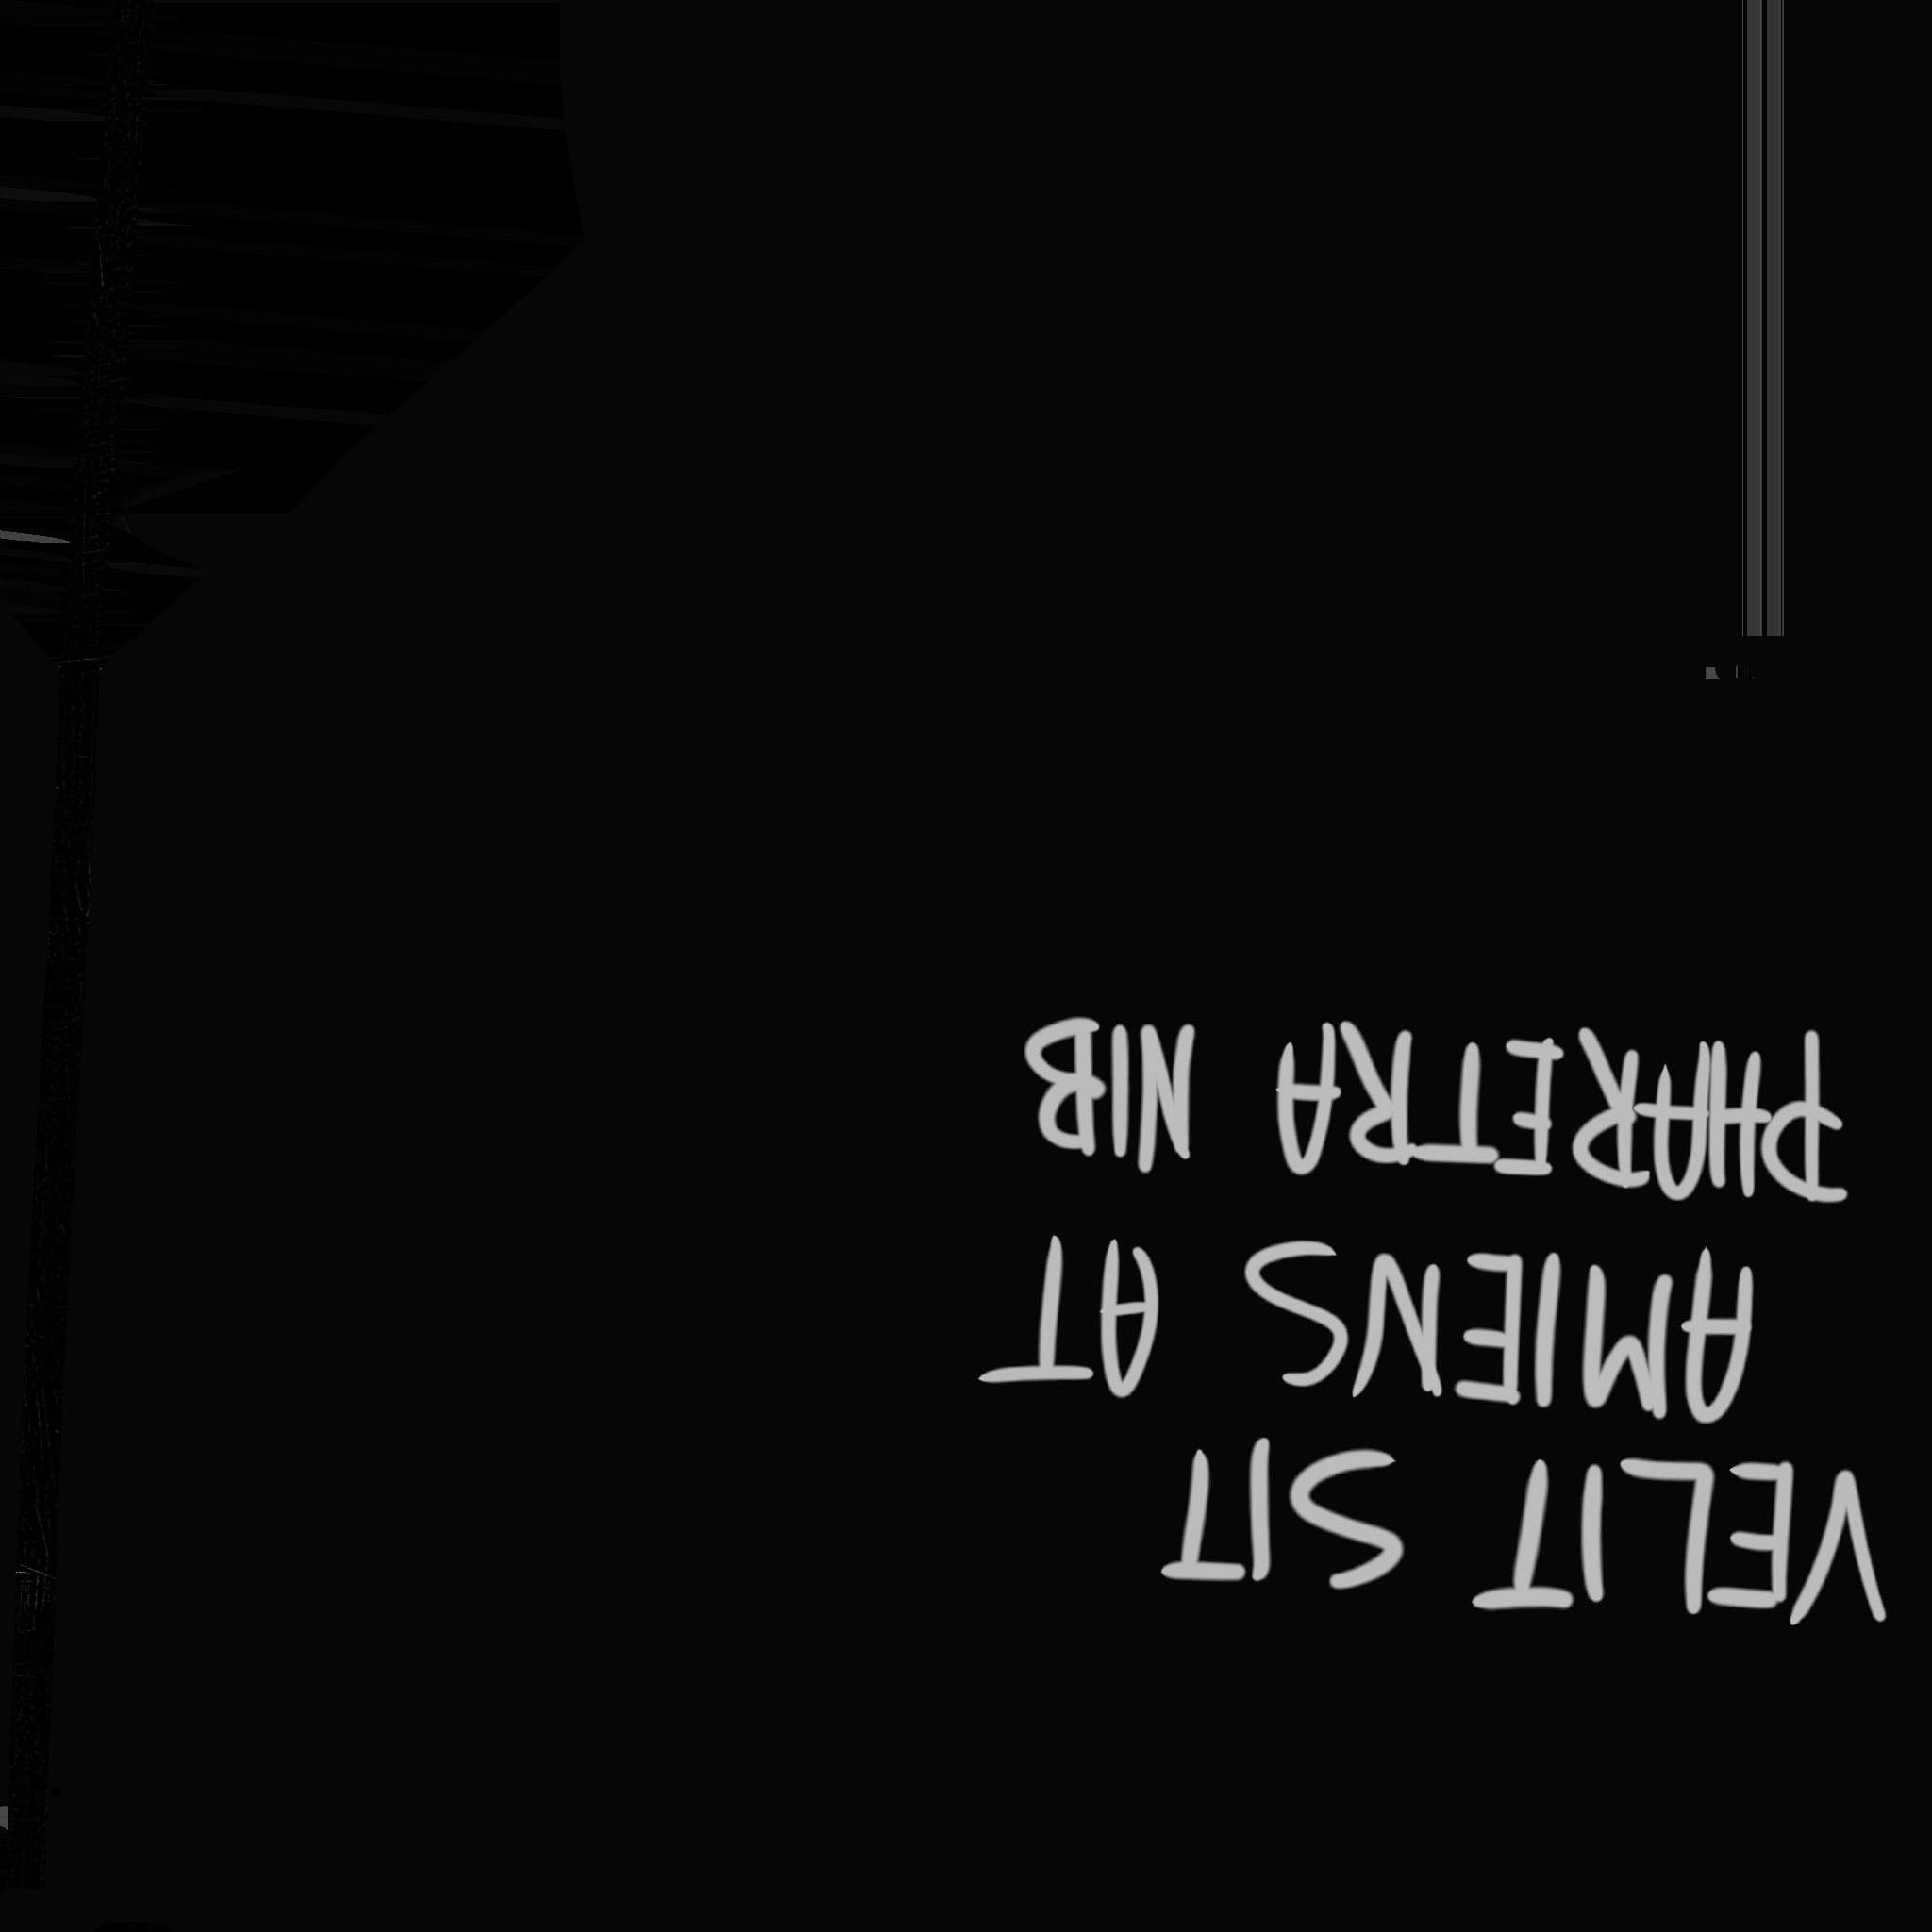 VELIT SIT
AMIENS AT
PHARETRA NIB